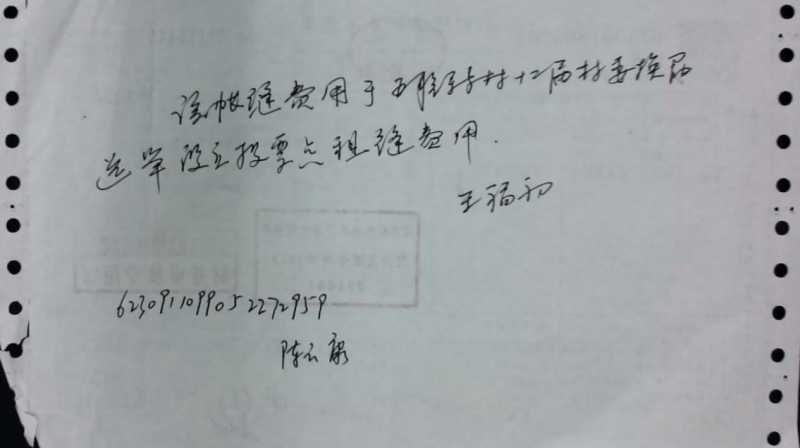 该帐篷费用于五联圩村十二届村委换届
选举设立投票点租篷费用.
王福初
6230911099052272959
陈云康